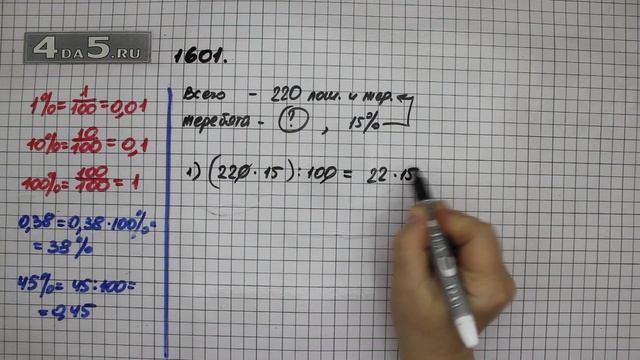 4DA5.RU
1601.
1% = 1/100 = 0,01
10% = 10/100 = 0,1
100% = 100/100 = 1
0,38 = 0,38·100% =
= 38%
45% = 45:100 =
= 0,45
Всего - 220 лош. и жер.
жеребята - ? , 15%
1) (220·15):100 = 22·15